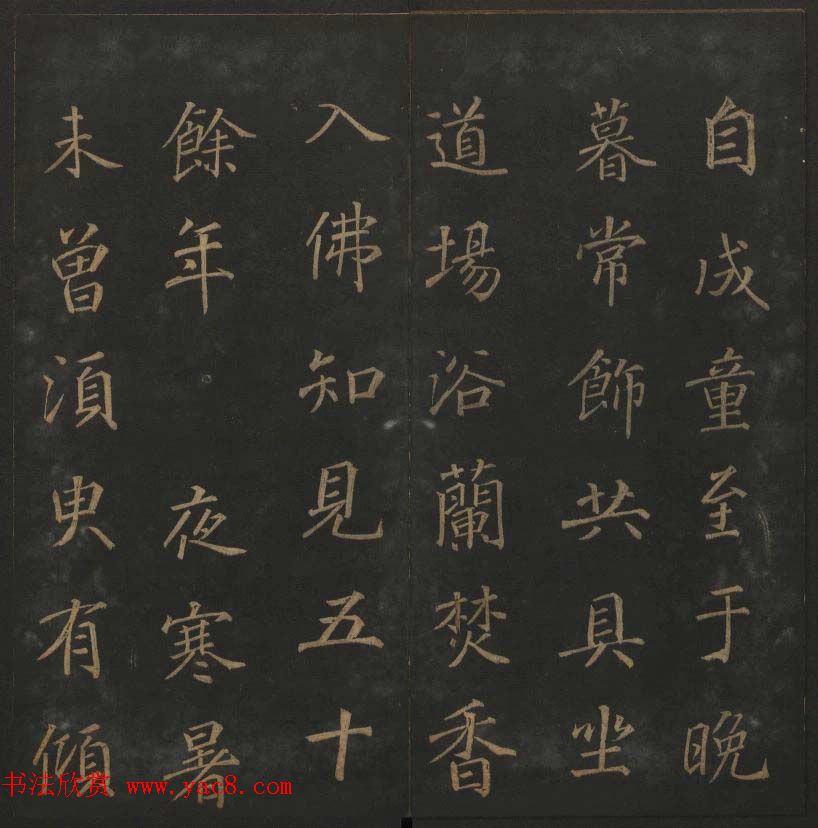 自成童至于晚
暮常飾共具坐
道場浴蘭焚香
入佛知見五十
餘年 夜寒暑
未曾須臾有傾
书法欣赏 www.yac8.com